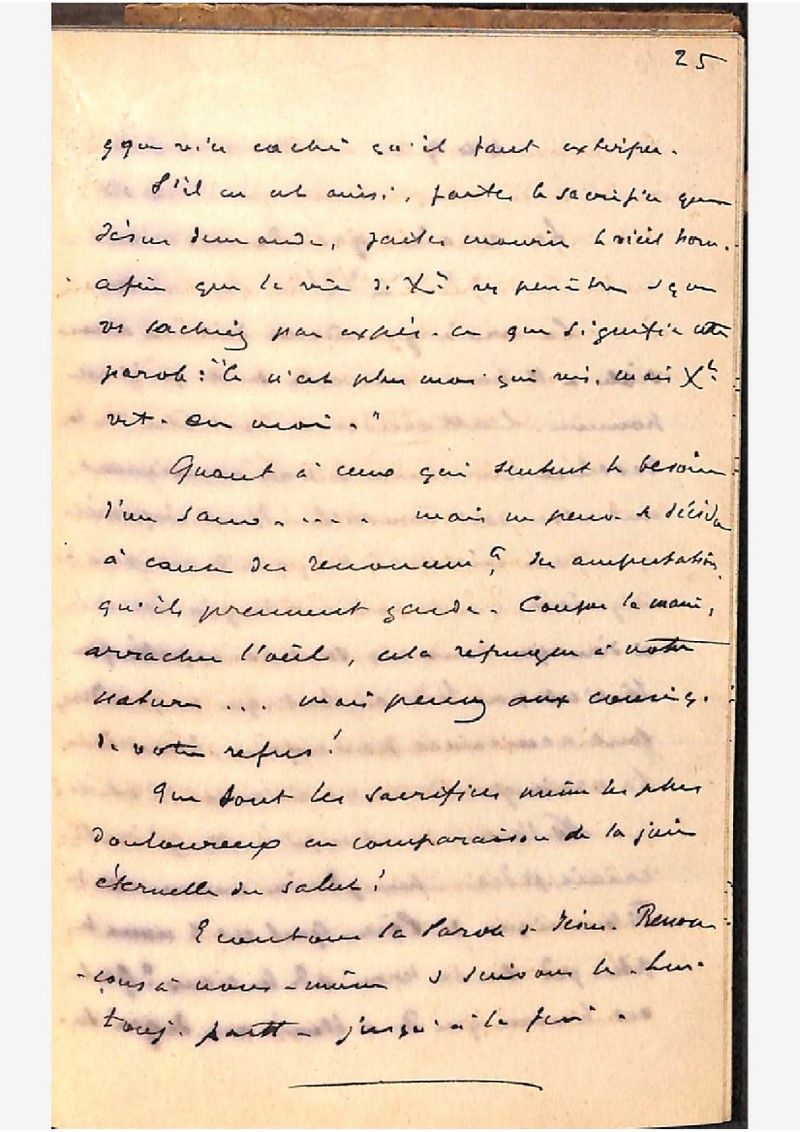 25
qque vice caché qu'il faut extirper.
S'il en est ainsi, faites le sacrifice que
Jésus demande, faites mourir le vieil hom.
afin que la vie d. Xt vs pénètre & que
vs sachiez par expér. ce que signifie cette
parole: "Ce n'est plus moi qui vis, mais Xt
vit. en moi."
Quant à ceux qui sentent le besoin
d'un Sauv. .... mais ne peuv. se décider
à cause des renoncemts, des amputations,
qu'ils prennent garde. Couper la main,
arracher l'œil, cela répugne à votre
nature ... mais pensez aux conséq.
de votre refus!
Que sont les sacrifices même les plus
douloureux en comparaison de la joie
éternelle du salut!
Ecoutons la Parole d. Jésus. Renon-
-çons à nous-même & suivons le.
touj. partt- jusqu'à la fin.